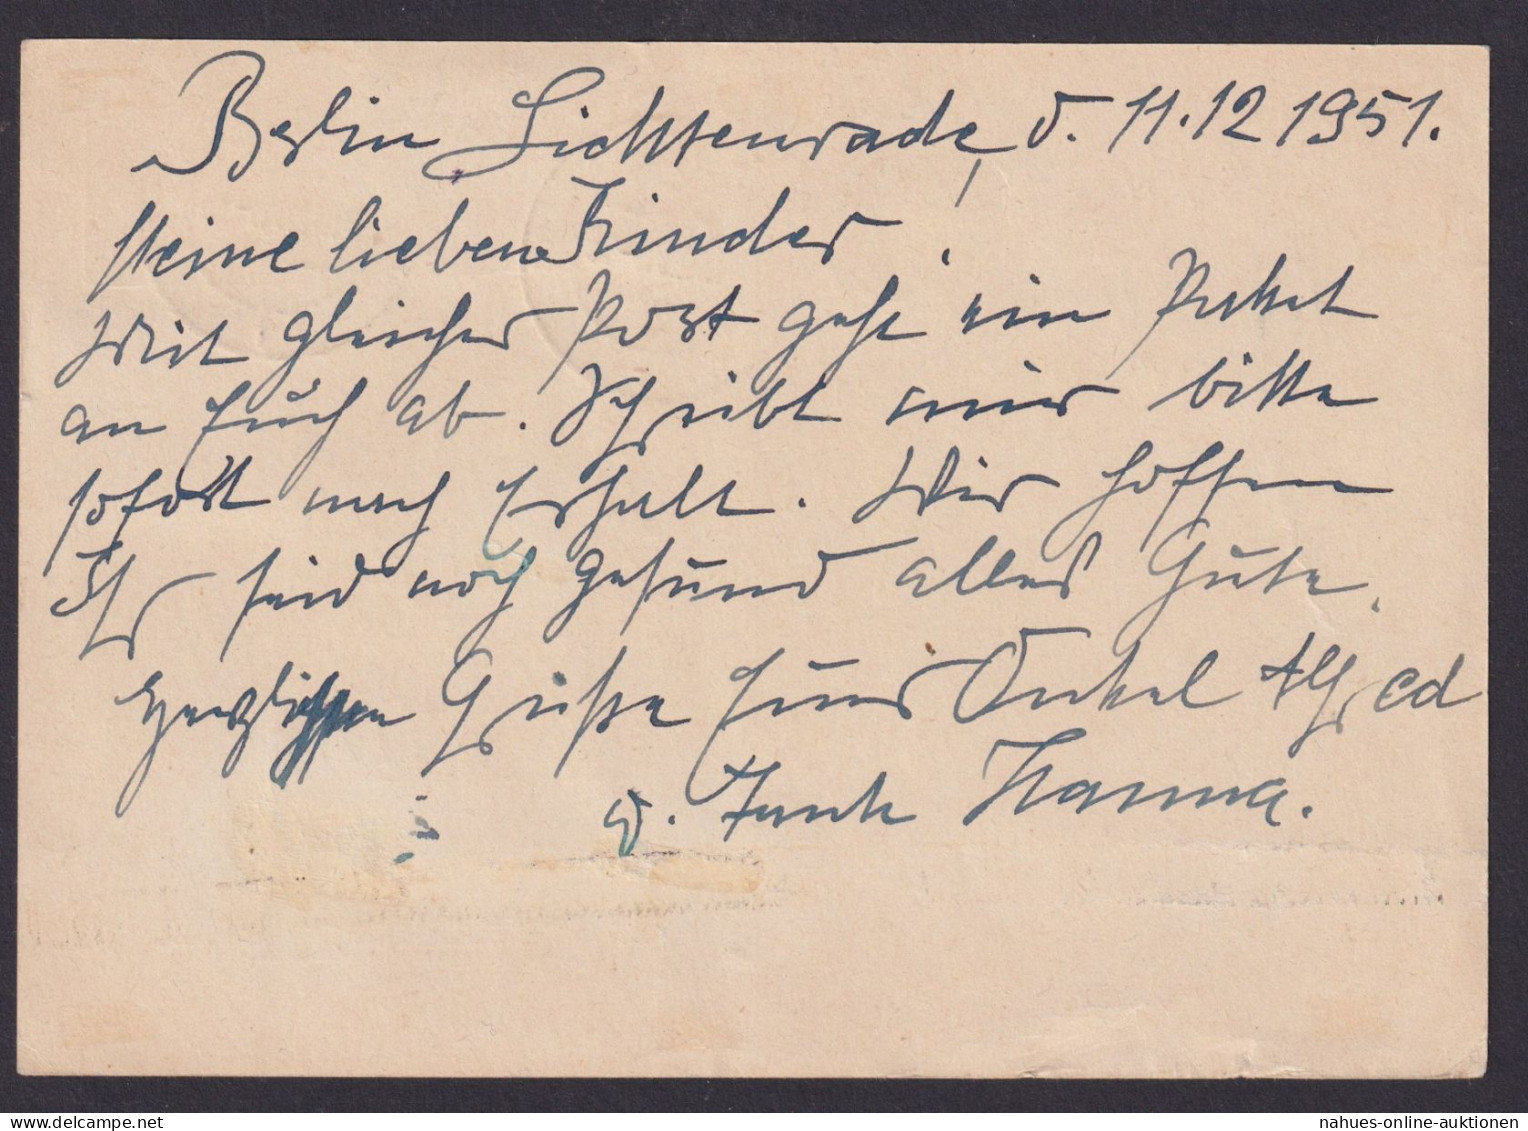 Berlin Lichtenrade, d. 11.12 1951.
Meine lieben Kinder!
Mit gleicher Post geht ein Paket
an Euch ab. Schreibt mir bitte
sofort nach Erhalt. Wir hoffen
Ihr seid noch gesund alles Gute.
Herzlichen Grüße Euer Onkel Alfred
u. Tante Hanna.
nahues-online-auktionen